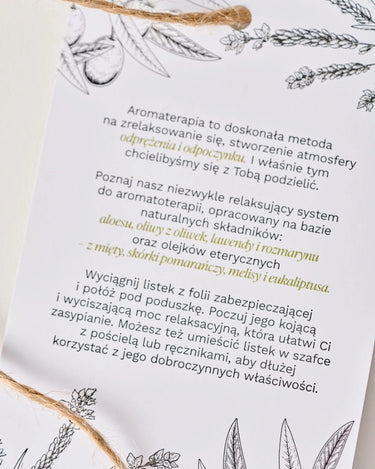 Aromaterapia to doskonała metoda
na zrelaksowanie się, stworzenie atmosfery
odprężenia i odpoczynku. I właśnie tym
chcielibyśmy się z Tobą podzielić.
Poznaj nasz niezwykle relaksujący system
do aromatoterapii, opracowany na bazie
naturalnych składników:
aloesu, oliwy z oliwek, lawendy i rozmarynu
oraz olejków eterycznych
- z mięty, skórki pomarańczy, melisy i eukaliptusa.
Wyciągnij listek z folii zabezpieczającej
i połóż pod poduszkę. Poczuj jego kojącą
i wyciszającą moc relaksacyjną, która ułatwi Ci
zasypianie. Możesz też umieścić listek w szafce
z pościelą lub ręcznikami, aby dłużej
korzystać z jego dobroczynnych właściwości.